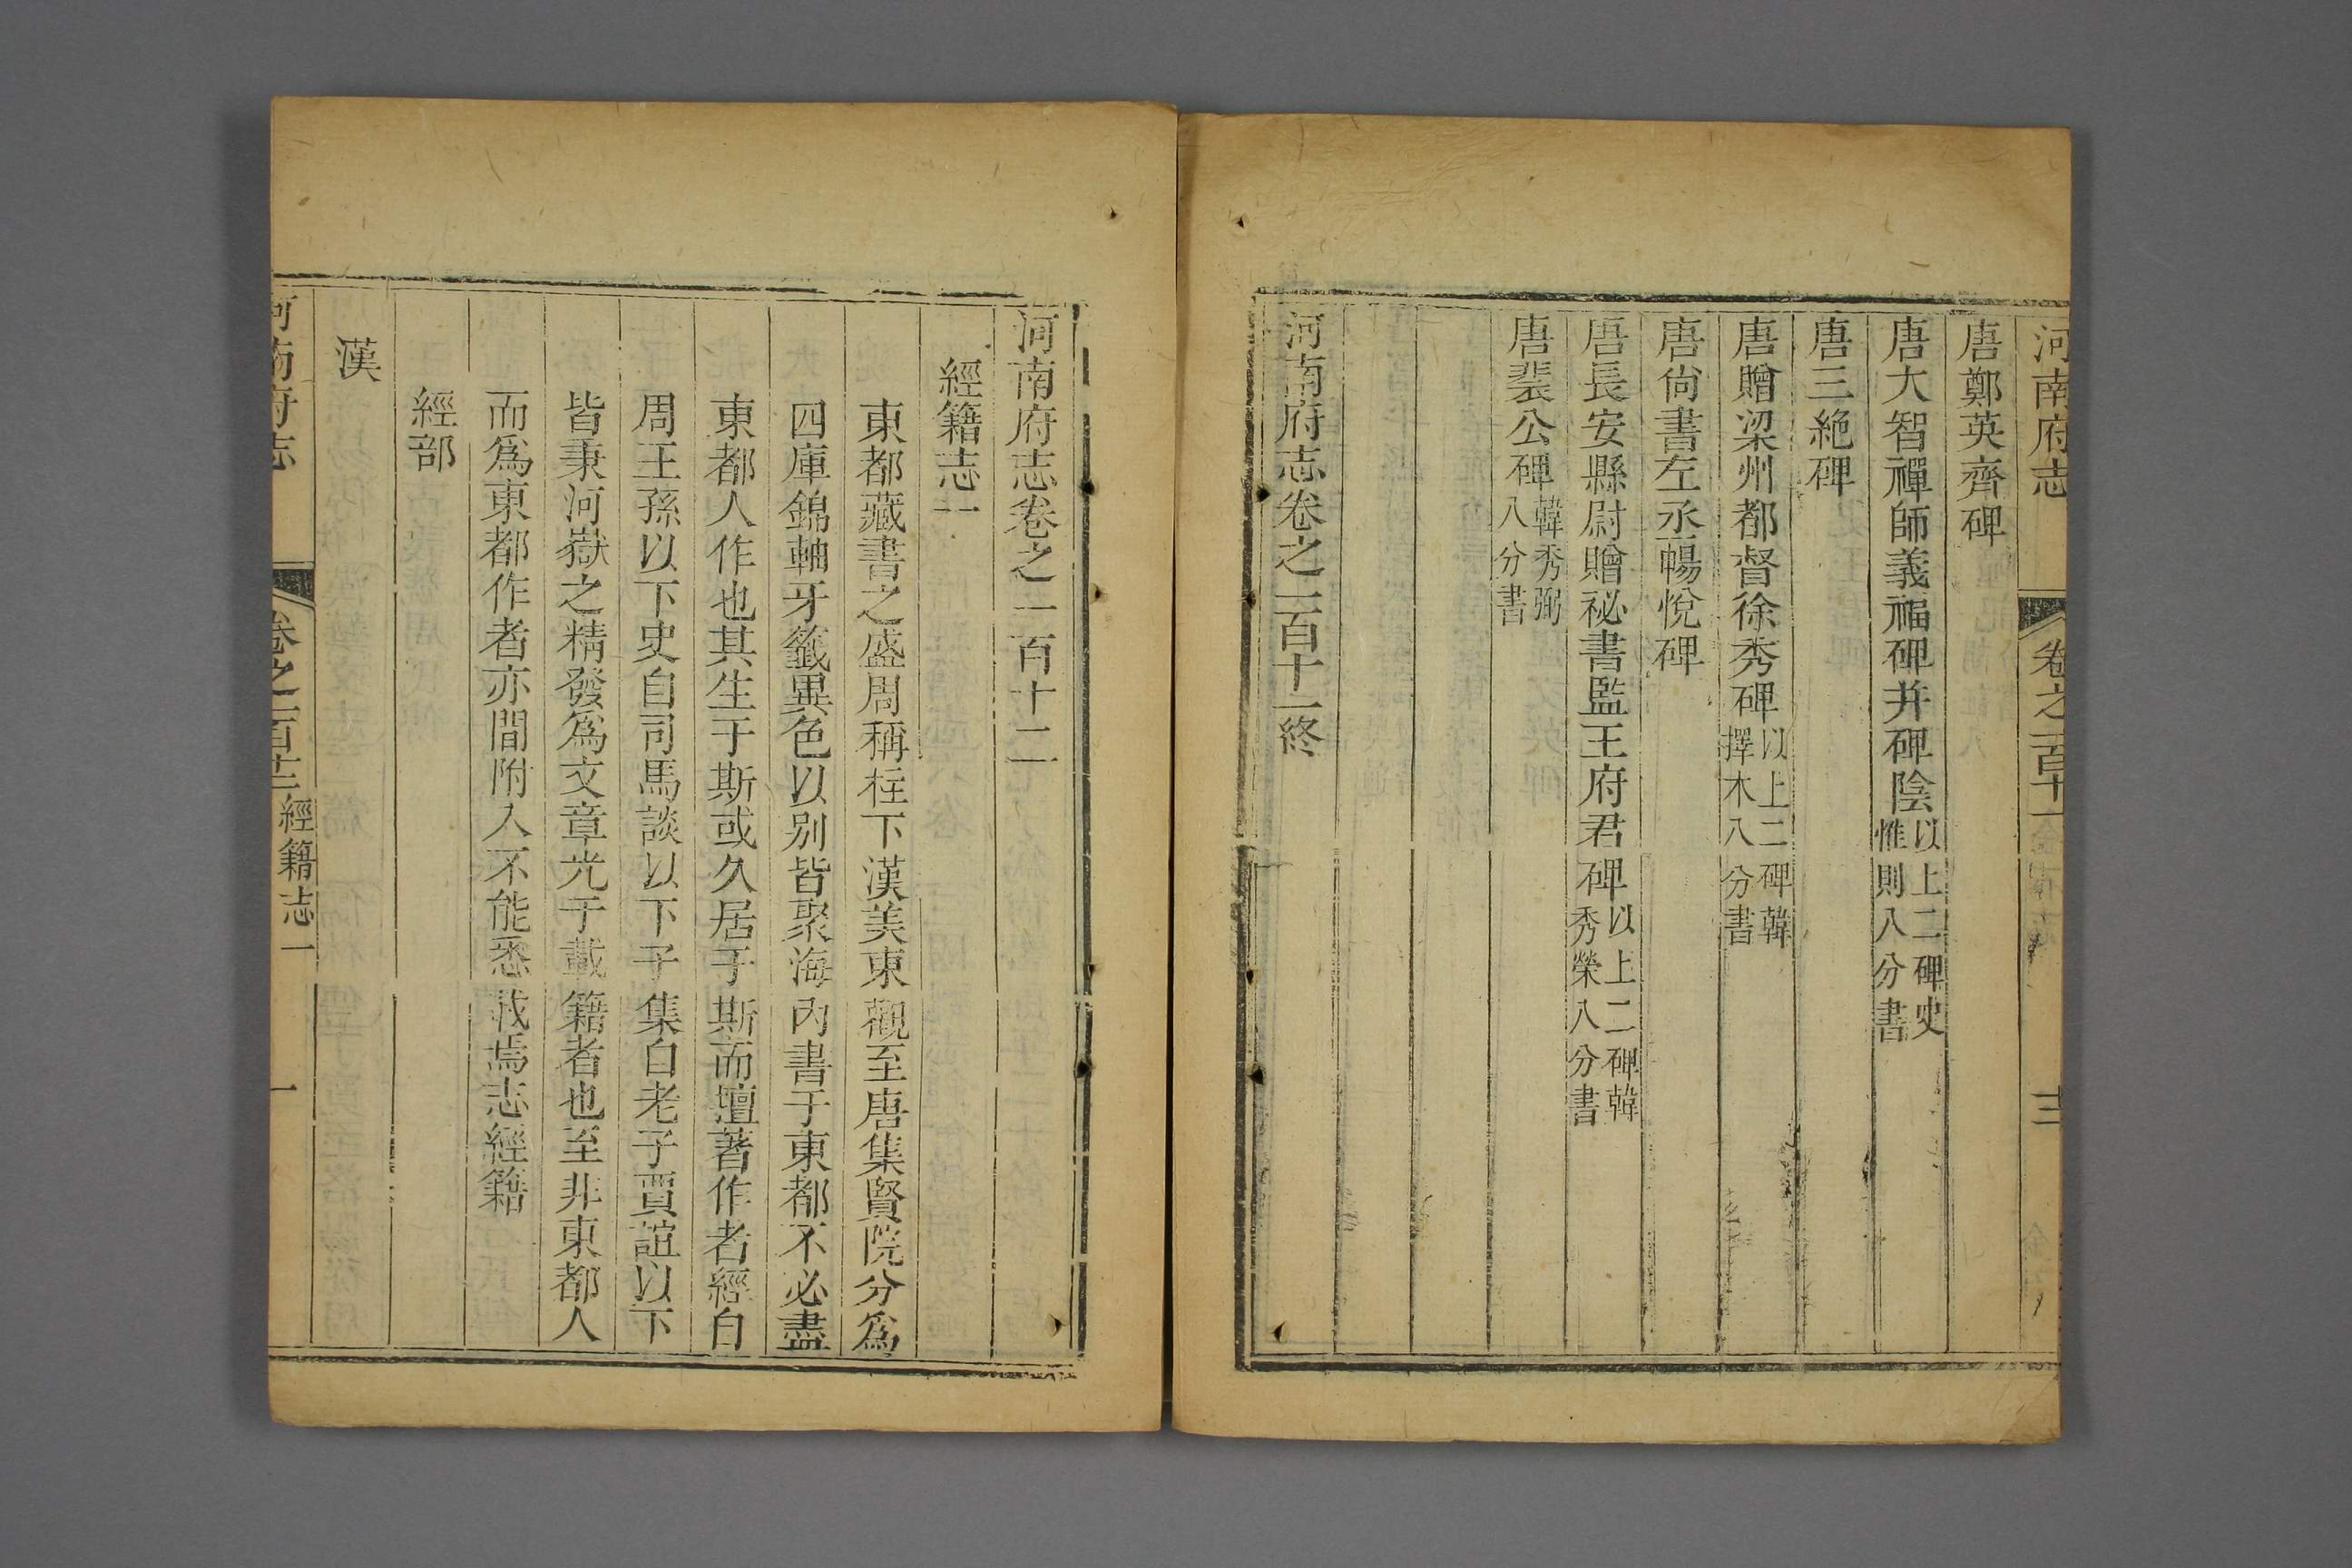 河南府志
卷之一百十一
十三
唐鄭英齊碑
唐大智禪師義福碑并碑陰以上二碑史惟則八分書
唐三絶碑
唐贈梁州都督徐秀碑以上二碑韓擇木八分書
唐尙書左丞暢悅碑
唐長安縣尉贈祕書監王府君碑以上二碑韓秀榮八分書
唐裴公碑韓秀弼八分書
河南府志卷之一百十一終
河南府志卷之一百十二
經籍志一
東都藏書之盛周稱柱下漢美東觀至唐集賢院分爲
四庫錦軸牙籤異色以别皆聚海內書于東都不必盡
東都人作也其生于斯或久居于斯而壇著作者經自
周王孫以下史自司馬談以下子集自老子賈誼以下
皆秉河嶽之精發爲文章光于載籍者也至非東都人
而爲東都作者亦間附入不能悉載焉志經籍
經部
漢
河南府志
卷之一百十二
經籍志一
一